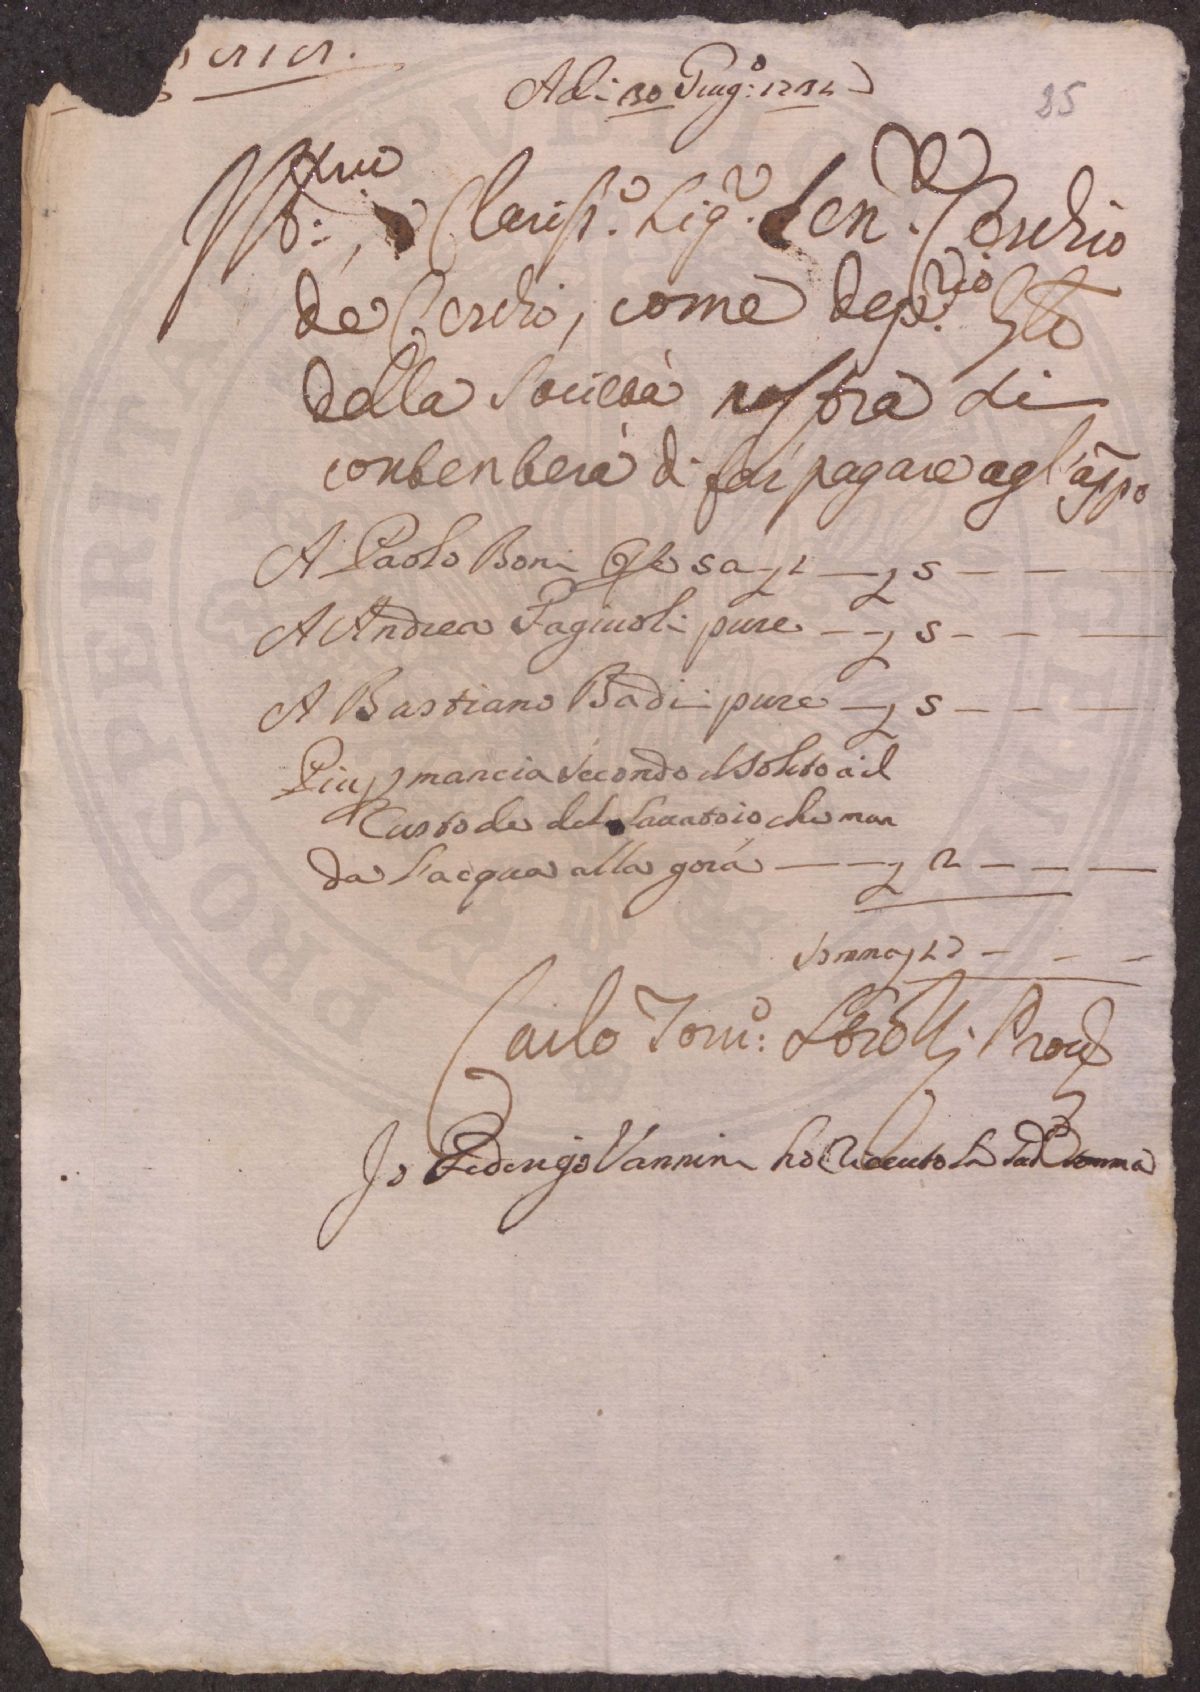 Adi 30 Giug.o 1734
25
Ill.mo, e Clariss.o Sig.r Sen.r Cerchio
de Cerchi, come dep.rio Sta
della Società nostra si
contenterà di far pagare agl'app.o
A Paolo Boni
A Andrea Fagiuoli pure — 5 — — —
A Bastiano Badii pure — 5 — — —
Più p mancia secondo il solito a il
Custode del Lavatoio che man
da l'acqua alla gora — — 2 — — —
somma 17 — — —
Carlo Tom.o Strozzi Prov.
Io Federigo Vannini ho riceuto la sud.a somma